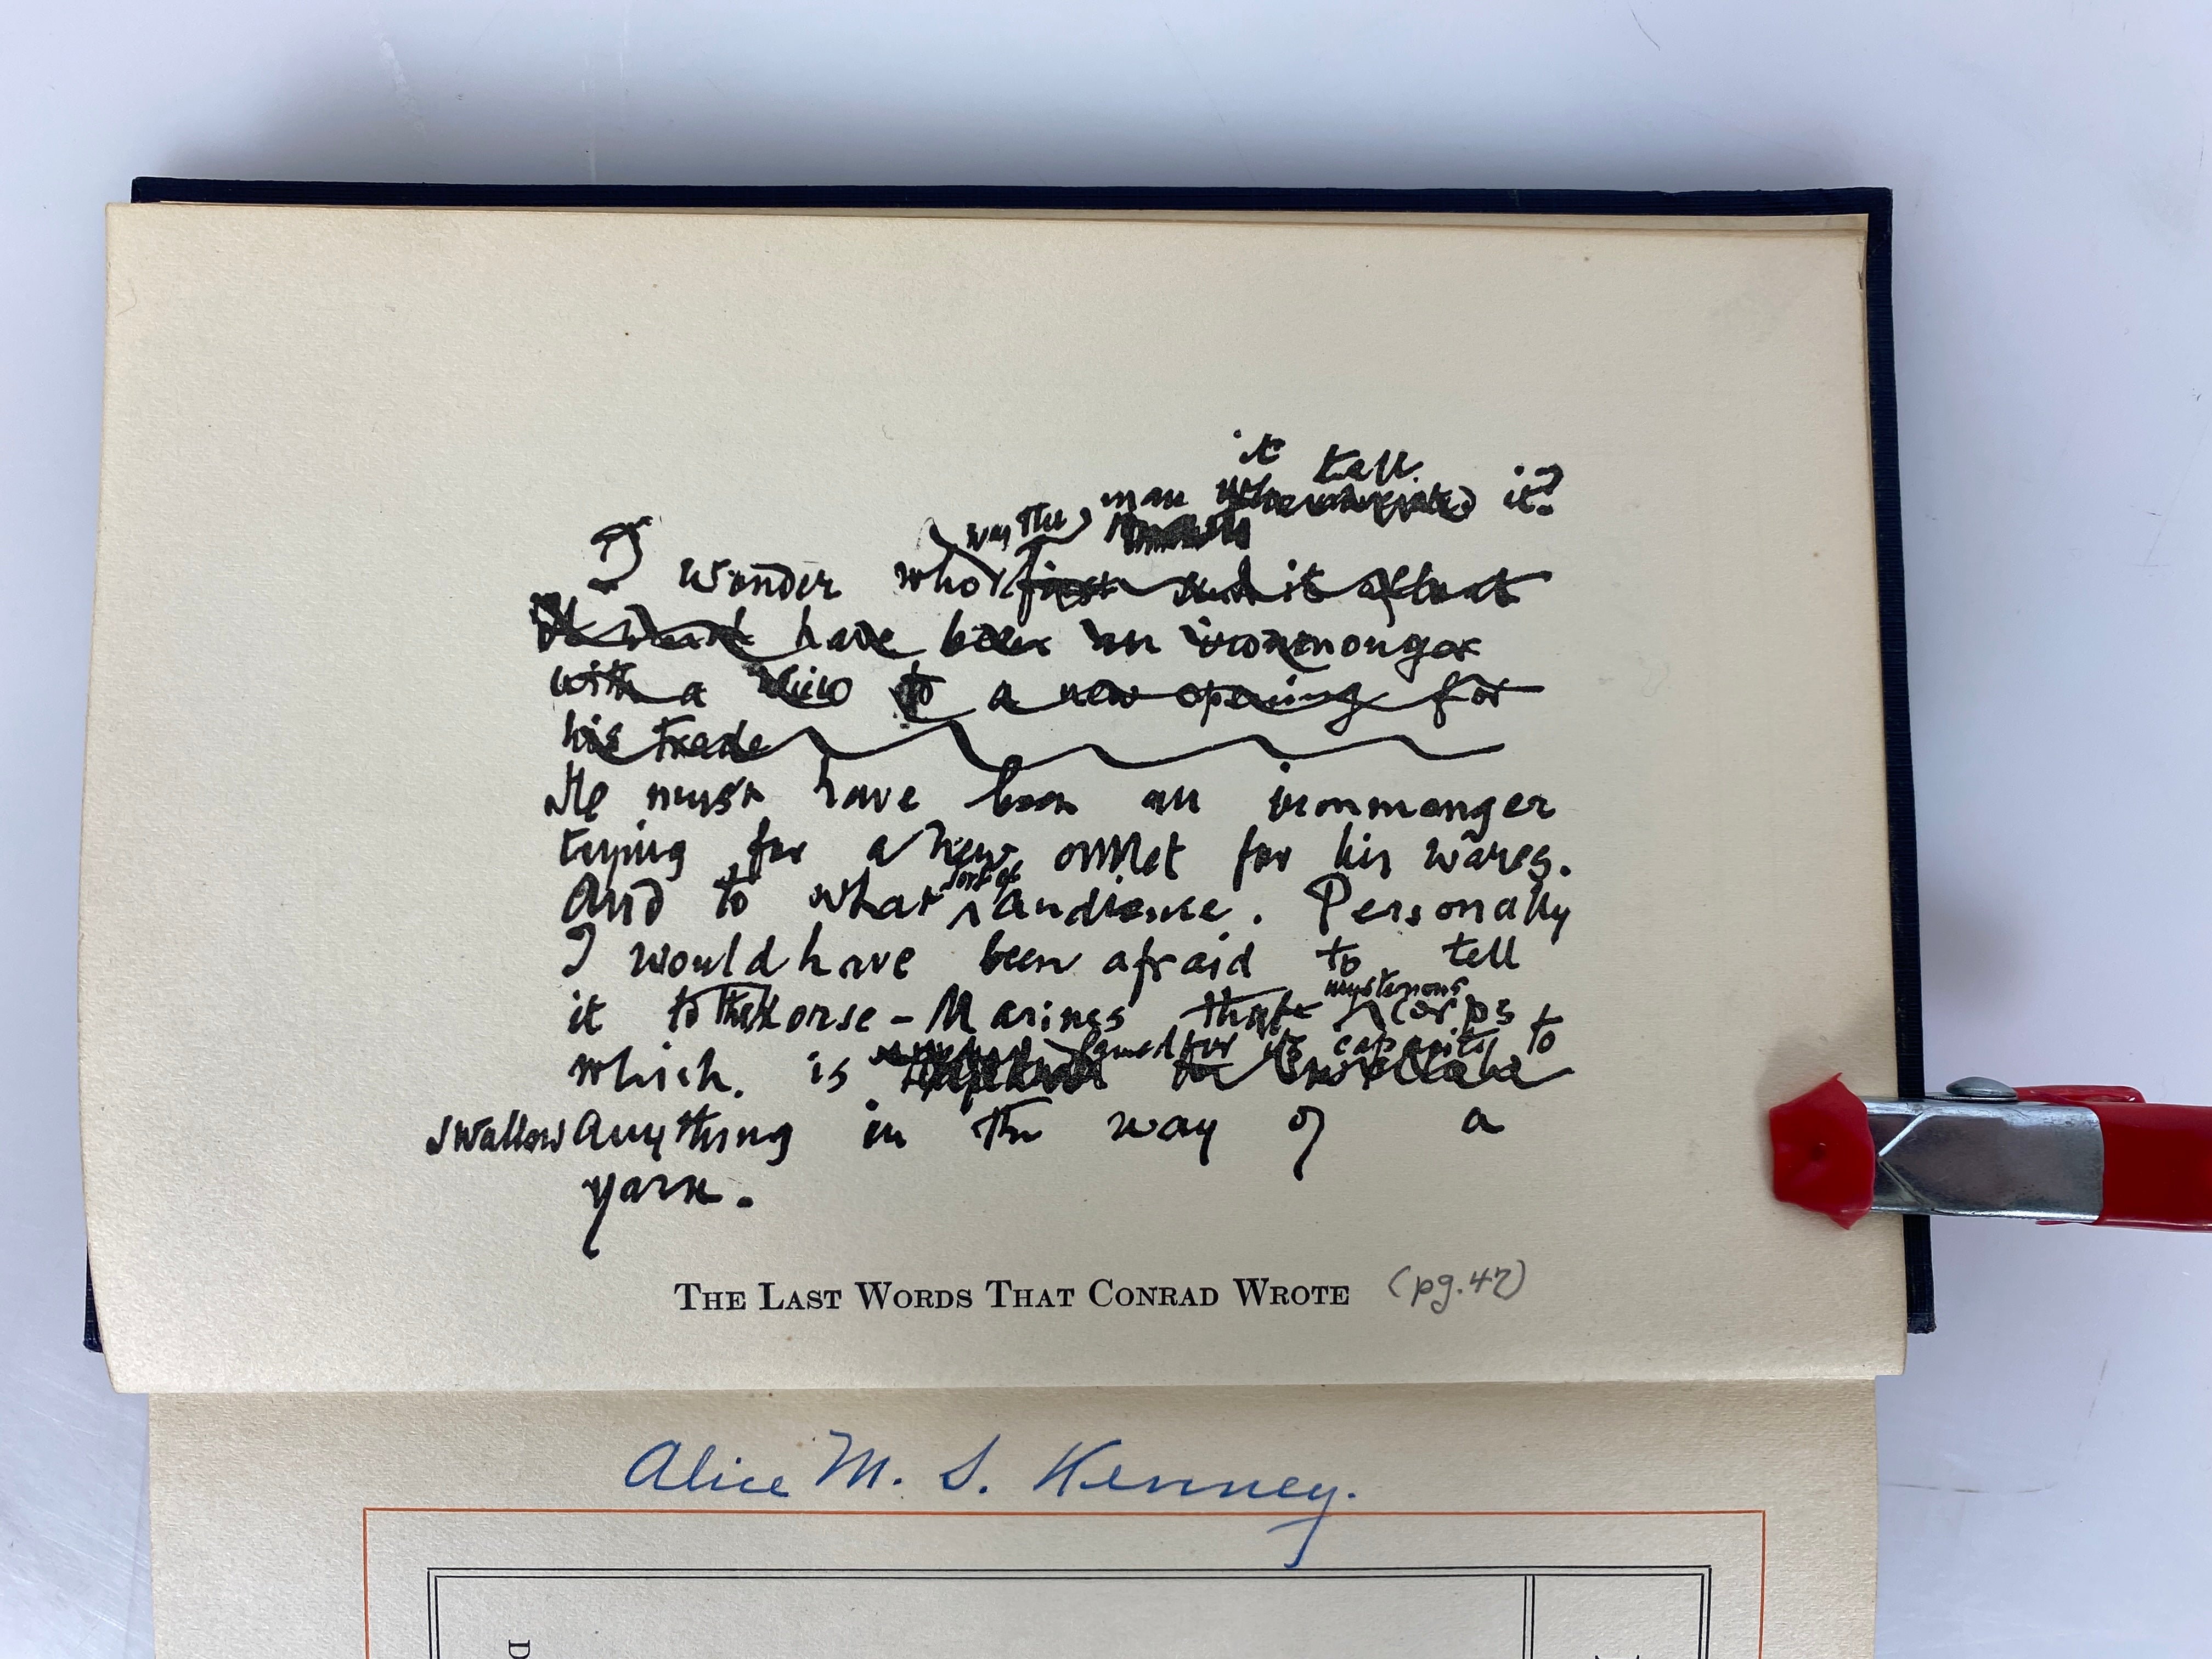 it tell
was the man who it?
I wonder who first it about
have been an ironmonger
with a view to a new opening for
his trade
He must have been an ironmonger
trying for a new outlet for his wares.
And to what sort of audience. Personally
I would have been afraid to tell
it to the Horse-Marines that mysterious corps
which is famed for its capacity to
swallow anything in the way of a
yarn.
THE LAST WORDS THAT CONRAD WROTE (pg.47)
Alice M. S. Kenney.
D